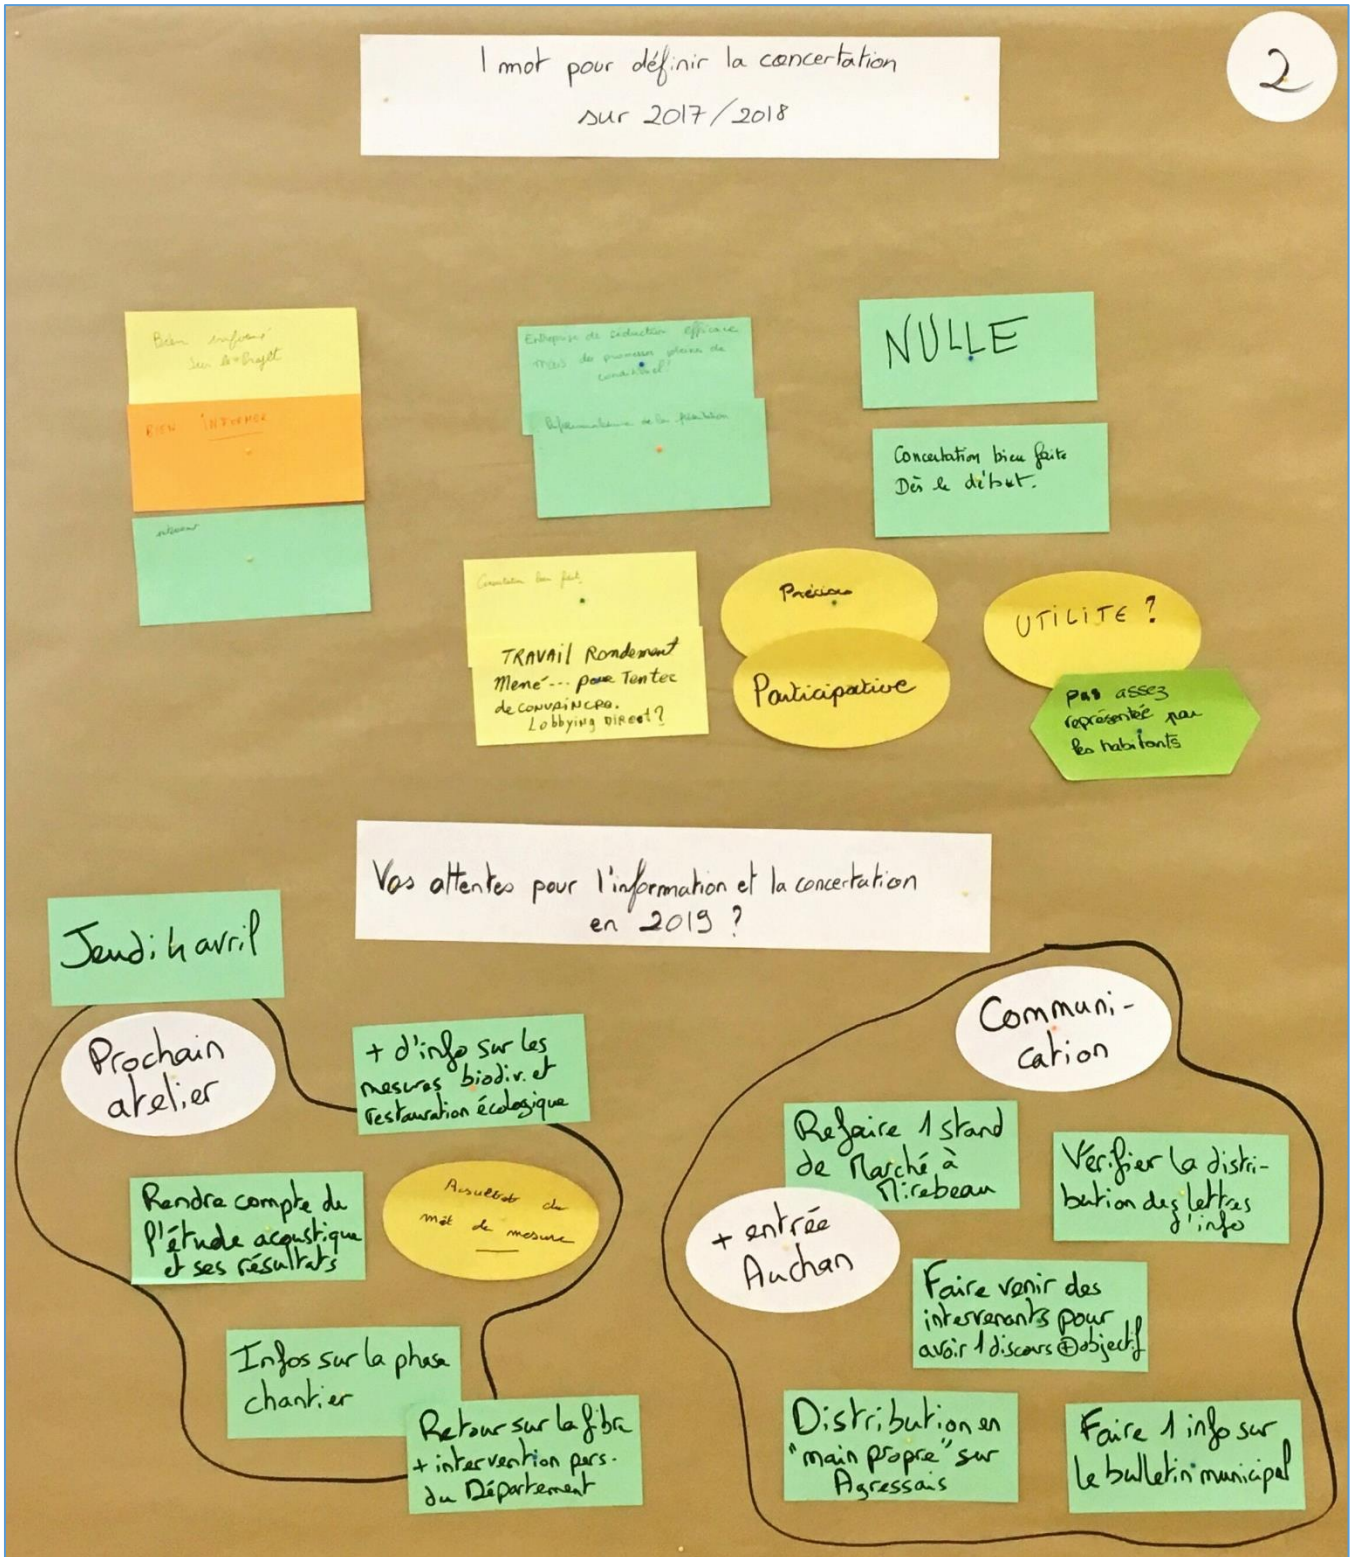 1 mot pour définir la concertation
sur 2017/2018
2
Bien informé
sur le Projet
BIEN INFORMER
Entreprise de séduction efficace
mais des promesses pleines de
conditionnel!
de la
NULLE
Concertation bien faite
Dès le début.
Concertation bien fait.
TRAVAIL Rondement
Mené... pour Tenter
de CONVAINCRE.
Lobbying DIRECT?
Précise
Participative
UTILITE ?
pas assez
représentée par
les habitants
Vos attentes pour l'information et la concertation
en 2019 ?
Jeudi 4 avril
Prochain
atelier
+ d'info sur les
mesures biodiv. et
restauration écologique
Rendre compte de
l'étude acoustique
et ses résultats
Resultats du
mât de mesure
Infos sur la phase
chantier
Retour sur la fibre
+ intervention pers.
du Département
Communi-
cation
Refaire 1 stand
de Marché à
Mirebeau
+ entrée
Auchan
Vérifier la distri-
bution des lettres
d'info
Faire venir des
intervenants pour
avoir 1 discours + objectif
Distribution en
"main propre" sur
Agressais
Faire 1 info sur
le bulletin municipal